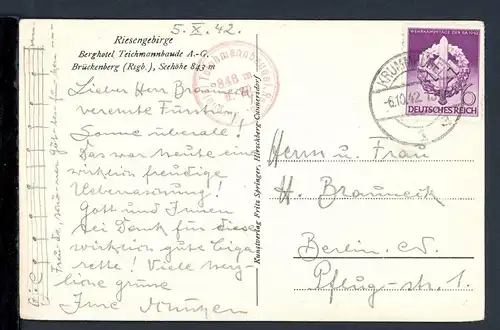 5. X. 42.
Riesengebirge
Berghotel Teichmannbaude A.-G.
Brückenberg (Rsgb.), Seehöhe 843 m
Teichmannbaude
843 m
Lieber Herr
verehrte
Sonne überall!
Das war heute eine
wirklich freudige
Ueberraschung!
Gott und Ihnen
sei Dank für diese
wirklich gute Ziga
rette! Viele herz-
liche grüsse
Ihre
Kunstverlag Fritz Springer, Hirschberg-Cunnersdorf
WEHRKAMPFTAGE DER SA 1942
DEUTSCHES REICH
KRUMMHÜBEL
-6.10.42
Herrn u. Frau
H. Brauneck
Berlin
Pflug-str. 1.